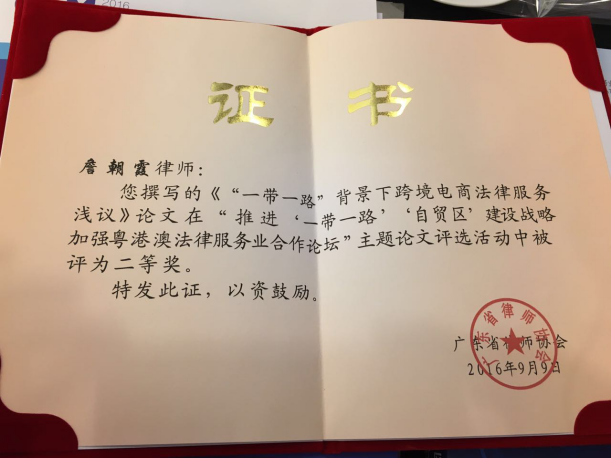 2016
证 书
詹朝霞律师：
您撰写的《“一带一路”背景下跨境电商法律服务
浅议》论文在“推进‘一带一路’‘自贸区’建设战略
加强粤港澳法律服务业合作论坛”主题论文评选活动中被
评为二等奖。
特发此证，以资鼓励。
广东省律师协会
2016年9月9日
广东省律师协会